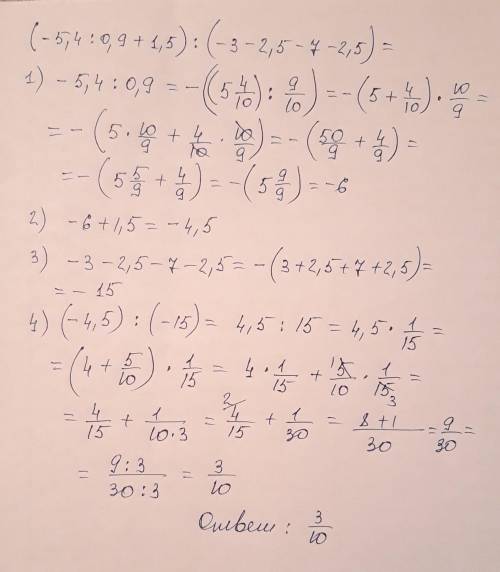 (-5,4 : 0,9 + 1,5) : (-3 - 2,5 - 7 - 2,5) =
1) -5,4 : 0,9 = -((5 4/10) : 9/10) = -(5 + 4/10) · 10/9 =
= -(5 · 10/9 + 4/10 · 10/9) = -(50/9 + 4/9) =
= -(5 5/9 + 4/9) = -(5 9/9) = -6
2) -6 + 1,5 = -4,5
3) -3 - 2,5 - 7 - 2,5 = -(3 + 2,5 + 7 + 2,5) =
= -15
4) (-4,5) : (-15) = 4,5 : 15 = 4,5 · 1/15 =
= (4 + 5/10) · 1/15 = 4 · 1/15 + 15/10 · 1/15 3 =
= 4/15 + 1/10·3 = 2 4/15 + 1/30 = 8+1/30 = 9/30 =
= 9:3/30:3 = 3/10
Ответ: 3/10